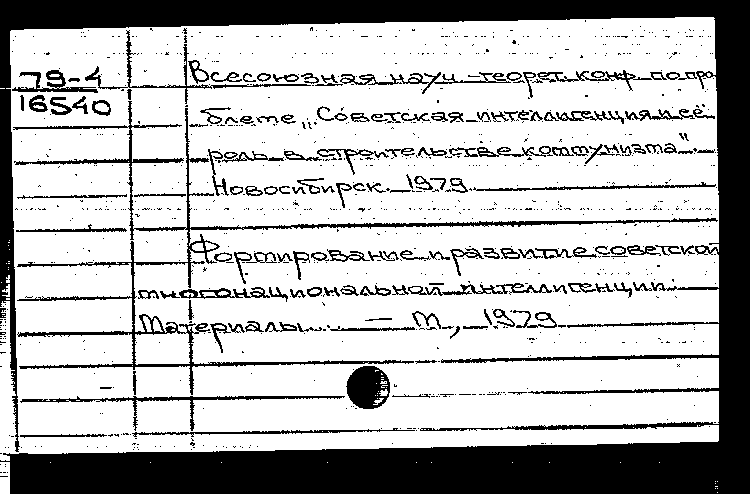 79-4
16540
Всесоюзная науч.-теорет. конф. по про
блеме „Советская интеллигенция и её
роль в строительстве коммунизма".
Новосибирск. 1979
Формирование и развитие советской
многонациональной интеллигенции.
Материалы... — М, 1979